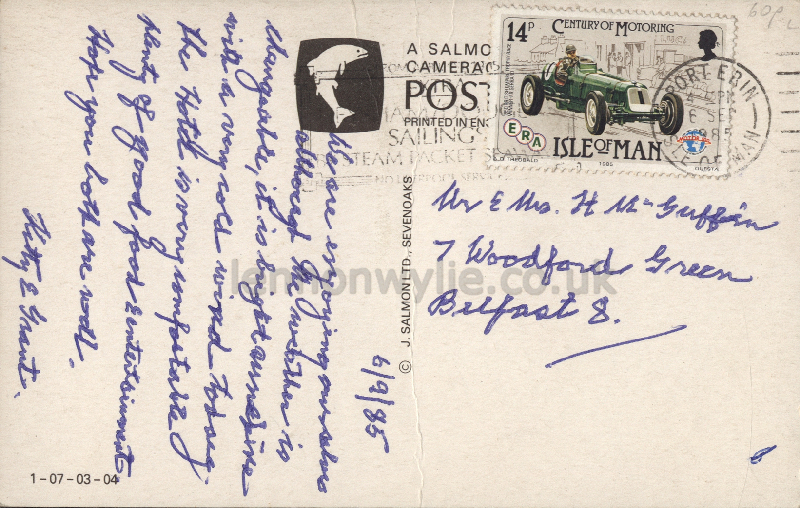 6/9/85
We are enjoying ourselves
although the weather is
changeable, it is bright sunshine
with a very cold wind today.
the Hotel is very comfortable
plenty of good food & entertainment
Hope you both are well.
Grant.
A SALMO
CAMERA
POS
PRINTED IN EN
© J. SALMON LTD., SEVENOAKS
1-07-03-04
60p
14P CENTURY OF MOTORING
ERA
ISLE OF MAN
1985
QUESTA
PORT ERIN
6 SE
1985
ISLE OF MAN
SAILINGS
STEAM PACKET
Mr & Mrs. H McGuffin
7 Woodford Green
Belfast 8.
lennonwylie.co.uk